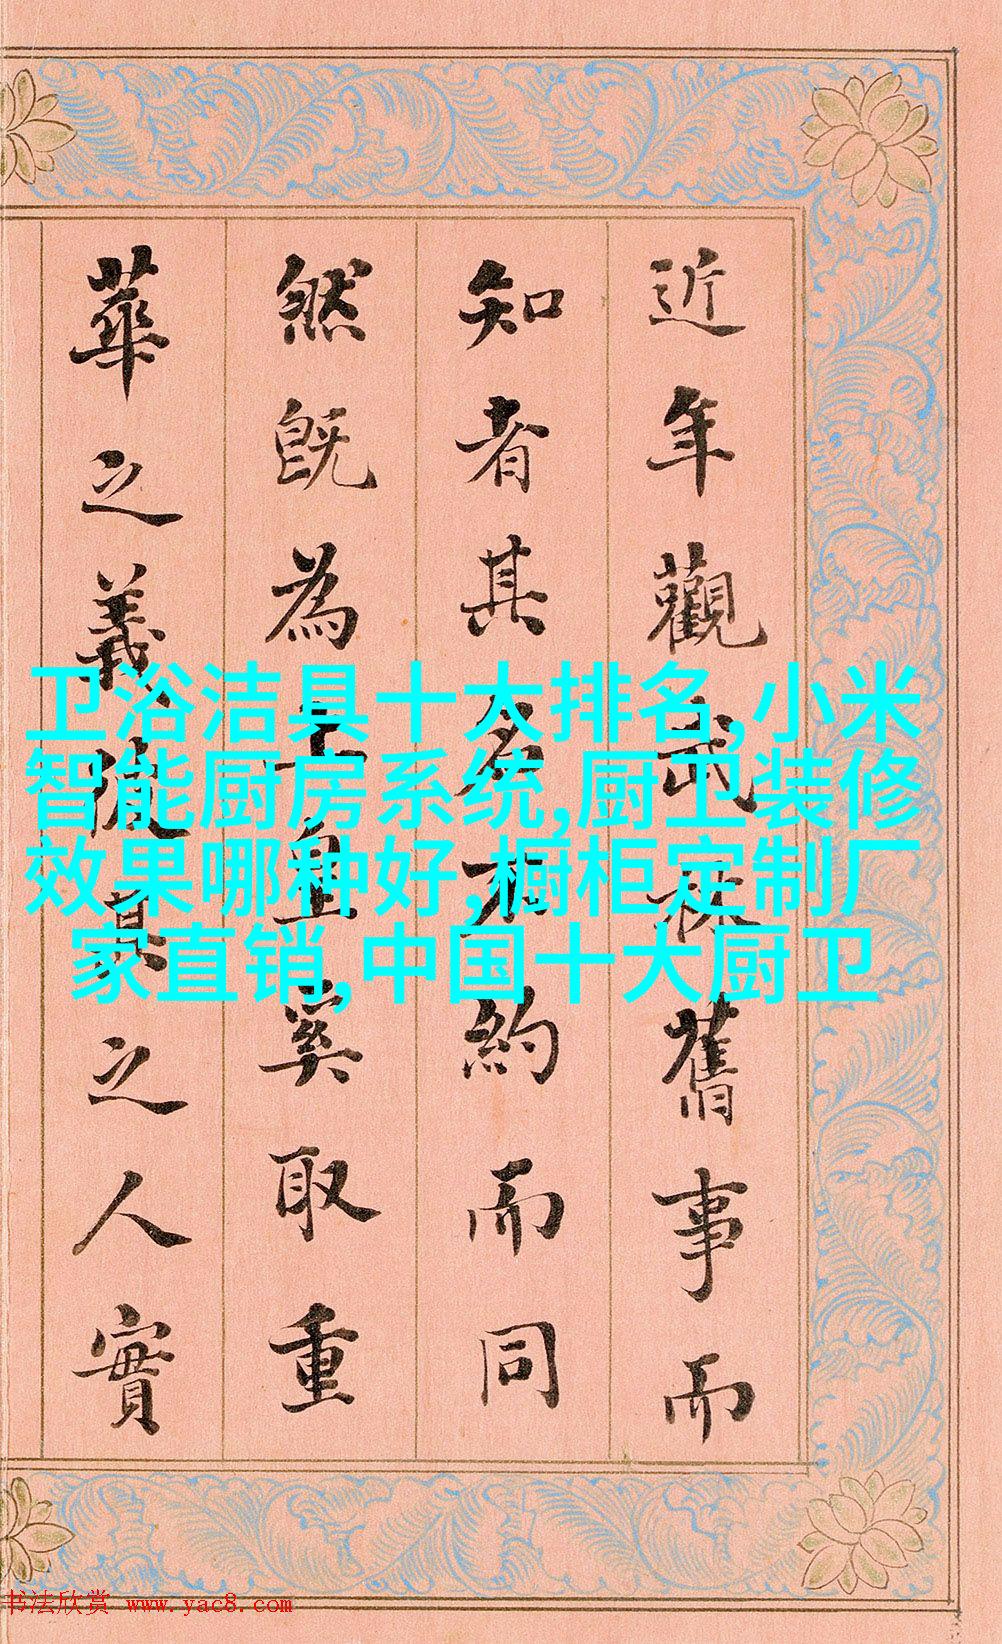 近年觀武林舊事而
知者其名不約而同
然既為奚取重
華之義之人實
卫浴洁具十大排名,小米
智能厨房系统,厨卫装修
效果哪种好,橱柜定制厂
家直销,中国十大厨卫
书法欣赏 www.yac8.com